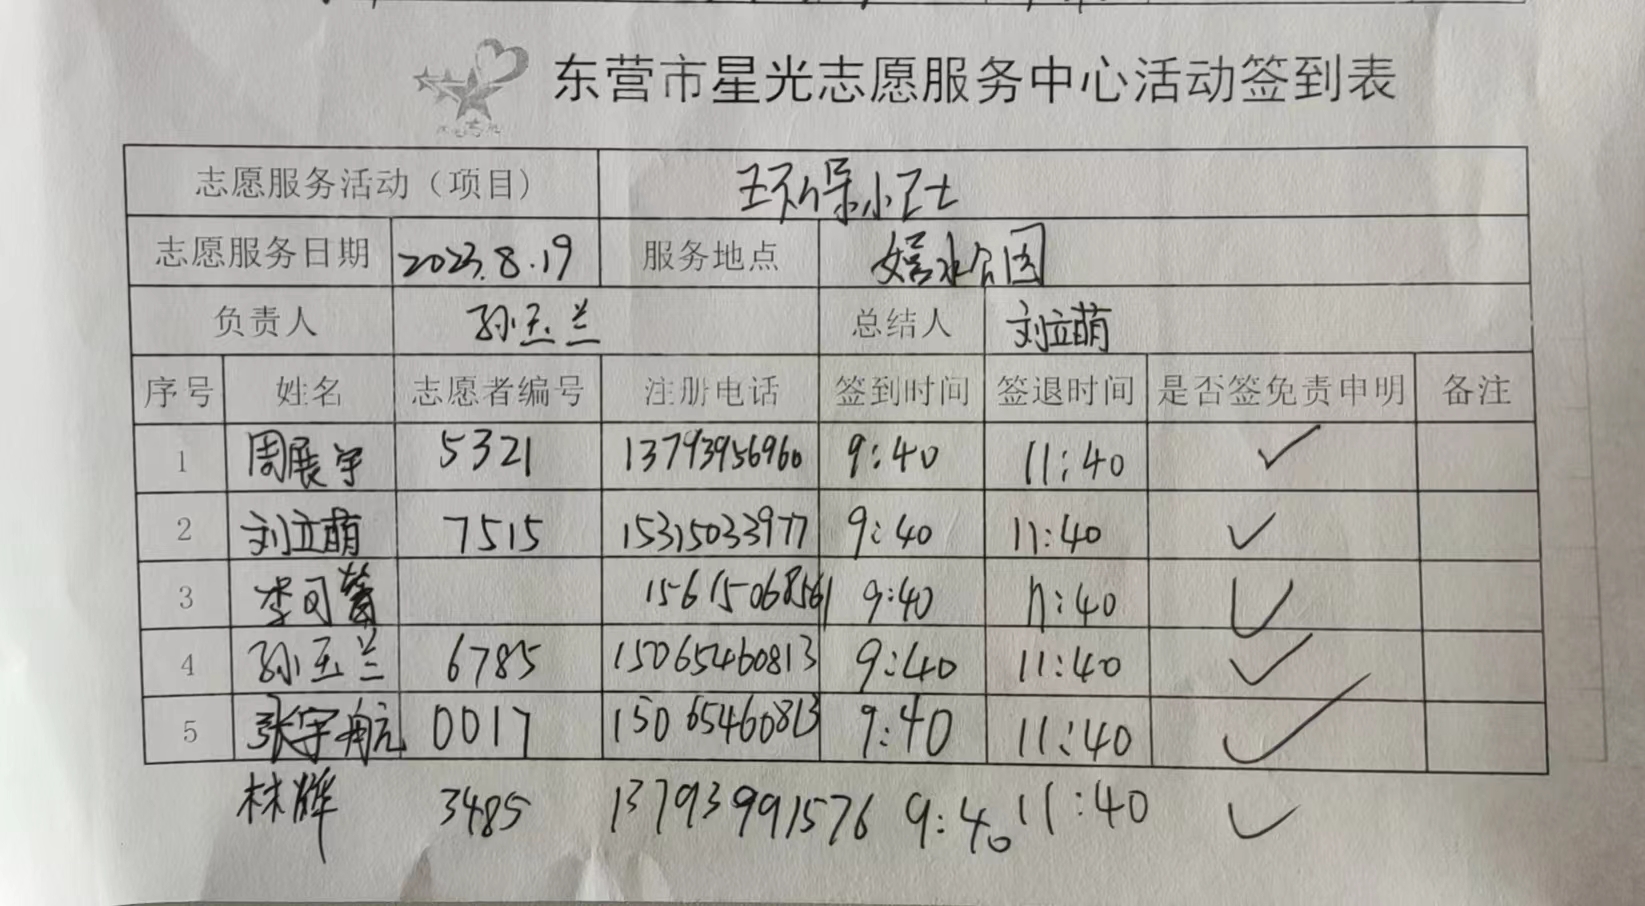 东营市星光志愿服务中心活动签到表
志愿服务活动（项目） 环保小卫士
志愿服务日期 2023.8.19 服务地点 嬉水公园
负责人 孙玉兰 总结人 刘立萌
序号 姓名 志愿者编号 注册电话 签到时间 签退时间 是否签免责申明 备注
1 周展宇 5321 13793956960 9:40 11:40 ✓
2 刘立萌 7515 15315033977 9:40 11:40 ✓
3 李可馨 15615068561 9:40 11:40 ✓
4 孙玉兰 6785 15065460813 9:40 11:40 ✓
5 张宇航 0017 15065460813 9:40 11:40 ✓
林辉 3485 13793991576 9:40 11:40 ✓